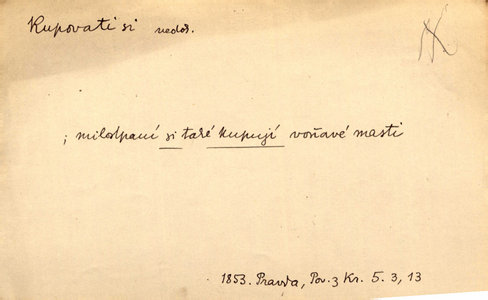 Kupovati si nedok.
; milostpaní si také kupují voňavé masti
1853. Pravda, Pov. z Kr. 5. 3, 13